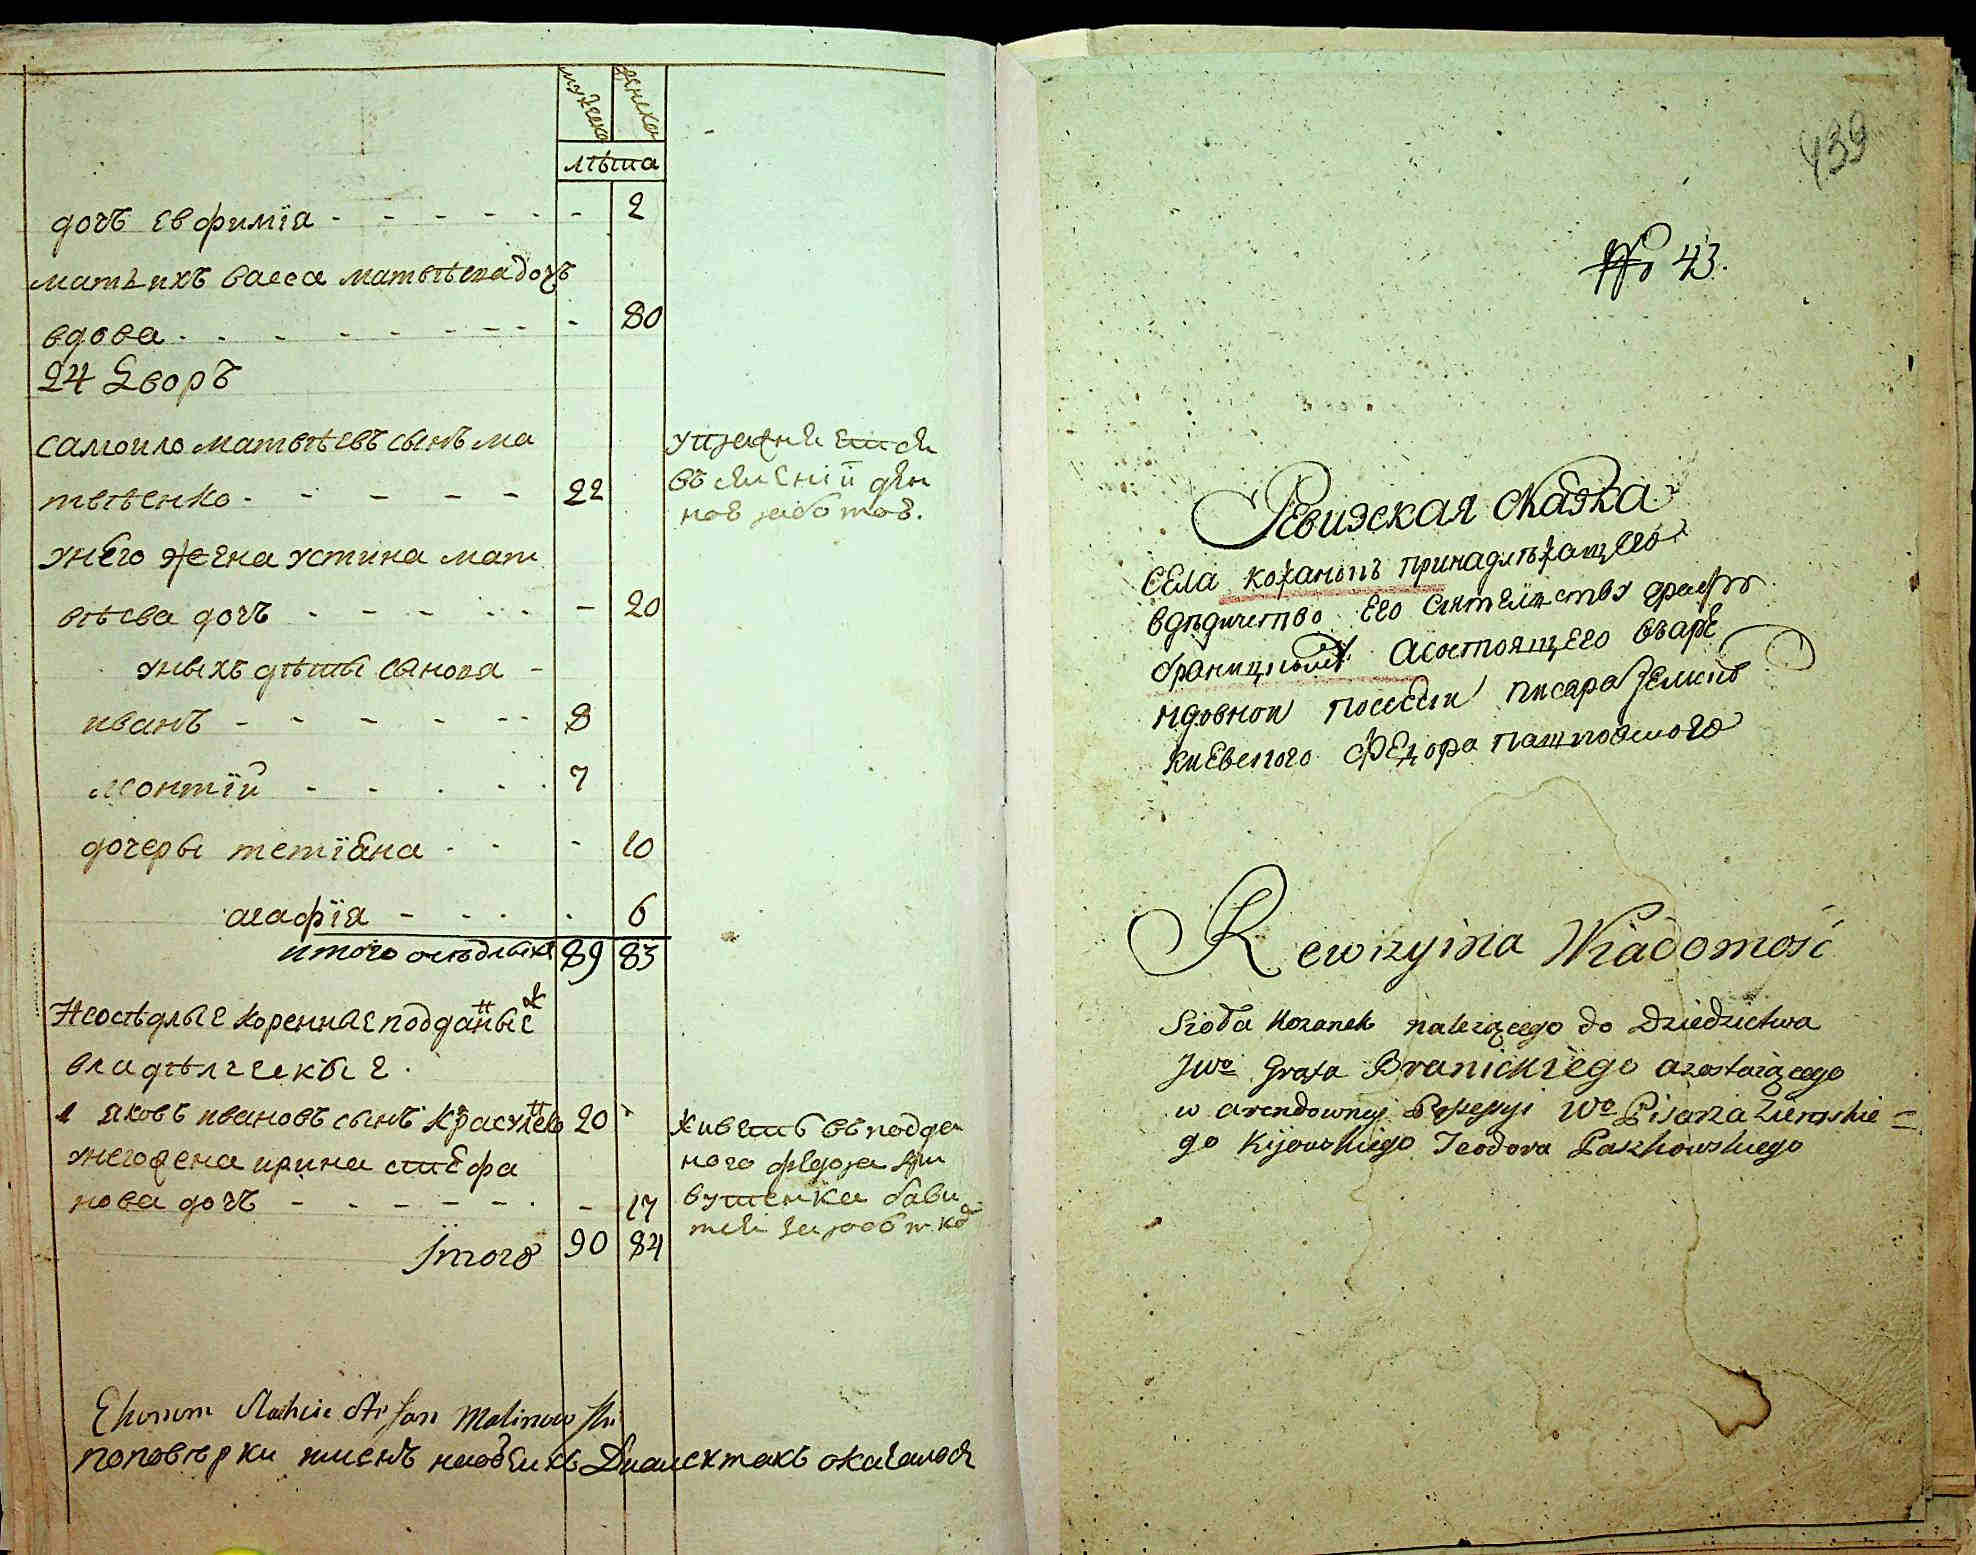 мужеска
женска
лѣта
дочъ евфимїя - - - - - - 2
мать ихъ васса матвѣева дочъ
вдова - - - - - - - 80
24 Дворъ
самоило матвѣевъ сынъ ма
твѣенко - - - - - 22
унего жена устина мат
вѣева дочъ - - - - - - 20
уныхъ дѣты сынова -
иванъ - - - - - - 8
леонтїй - - - - - 7
дочеры тетїана - - - 10
агафїя - - - - 6
итого осѣдлыхъ 89 83
въ имении
Неосѣдлые коренные подданные
владѣлческые
1 яковъ ивановъ сынъ Красуцкий 20
унегожена ирина стефа
нова дочъ - - - - - - 17
живетъ
ного федора
Iтого 90 84
Ekonom Malinowski
поповѣрки имснъ наобеихъ Диалектахъ оказалося
439
№ 43.
Ревизская сказка
села кожанокъ принадлѣжащего
вдѣдичетво Его Сиятелству графу
браницкому Асостоящего въаре
ндовной посессіи писара Земского
киевского Федора пашковского
Rewizyina Wiadomość
Sioła Kozanek należącego do Dziedzictwa
JWo Grafa Branickiego azostaiącego
w arendowney Possessyi Wo Pisarza Ziemskie=
go Kijowskiego Teodora Paszkowskiego